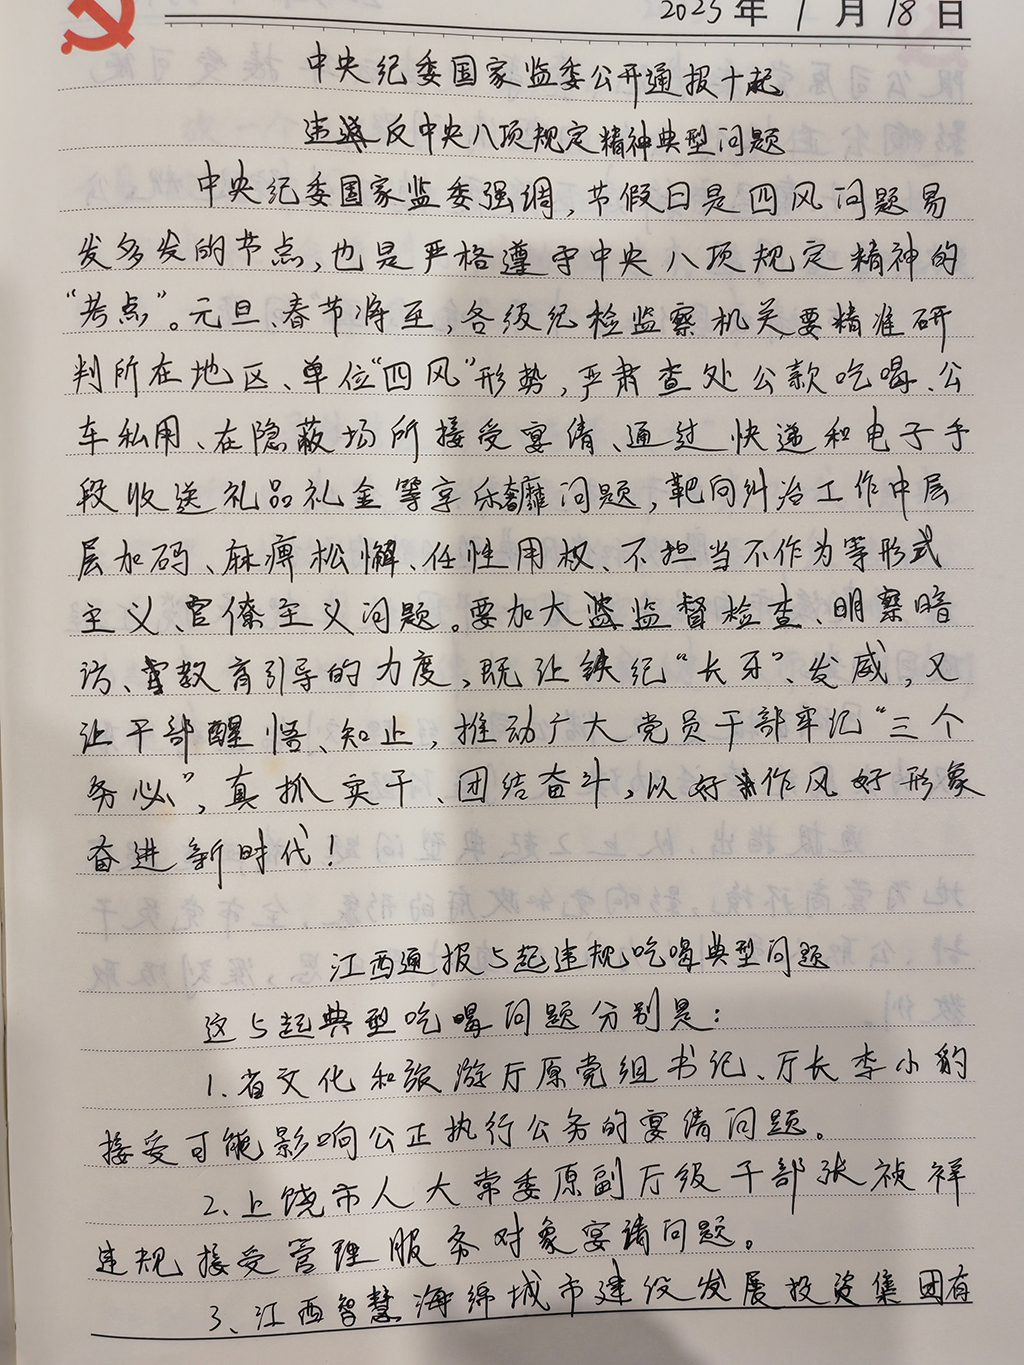 2025年1月18日
中央纪委国家监委公开通报十起
违反中央八项规定精神典型问题
中央纪委国家监委强调，节假日是四风问题易
发多发的节点，也是严格遵守中央八项规定精神的
“考点”。元旦、春节将至，各级纪检监察机关要精准研
判所在地区、单位“四风”形势，严肃查处公款吃喝、公
车私用、在隐蔽场所接受宴请、通过快递和电子手
段收送礼品礼金等享乐奢靡问题，靶向纠治工作中层
层加码、麻痹松懈、任性用权、不担当不作为等形式
主义、官僚主义问题。要加大监督检查、明察暗
访、教育引导的力度，既让铁纪“长牙”、发威，又
让干部醒悟、知止，推动广大党员干部牢记“三个
务必”，真抓实干、团结奋斗，以好作风好形象
奋进新时代！
江西通报5起违规吃喝典型问题
这5起典型吃喝问题分别是：
1.省文化和旅游厅原党组书记、厅长李小豹
接受可能影响公正执行公务的宴请问题。
2.上饶市人大常委原副厅级干部张祯祥
违规接受管理服务对象宴请问题。
3、江西智慧海绵城市建设发展投资集团有